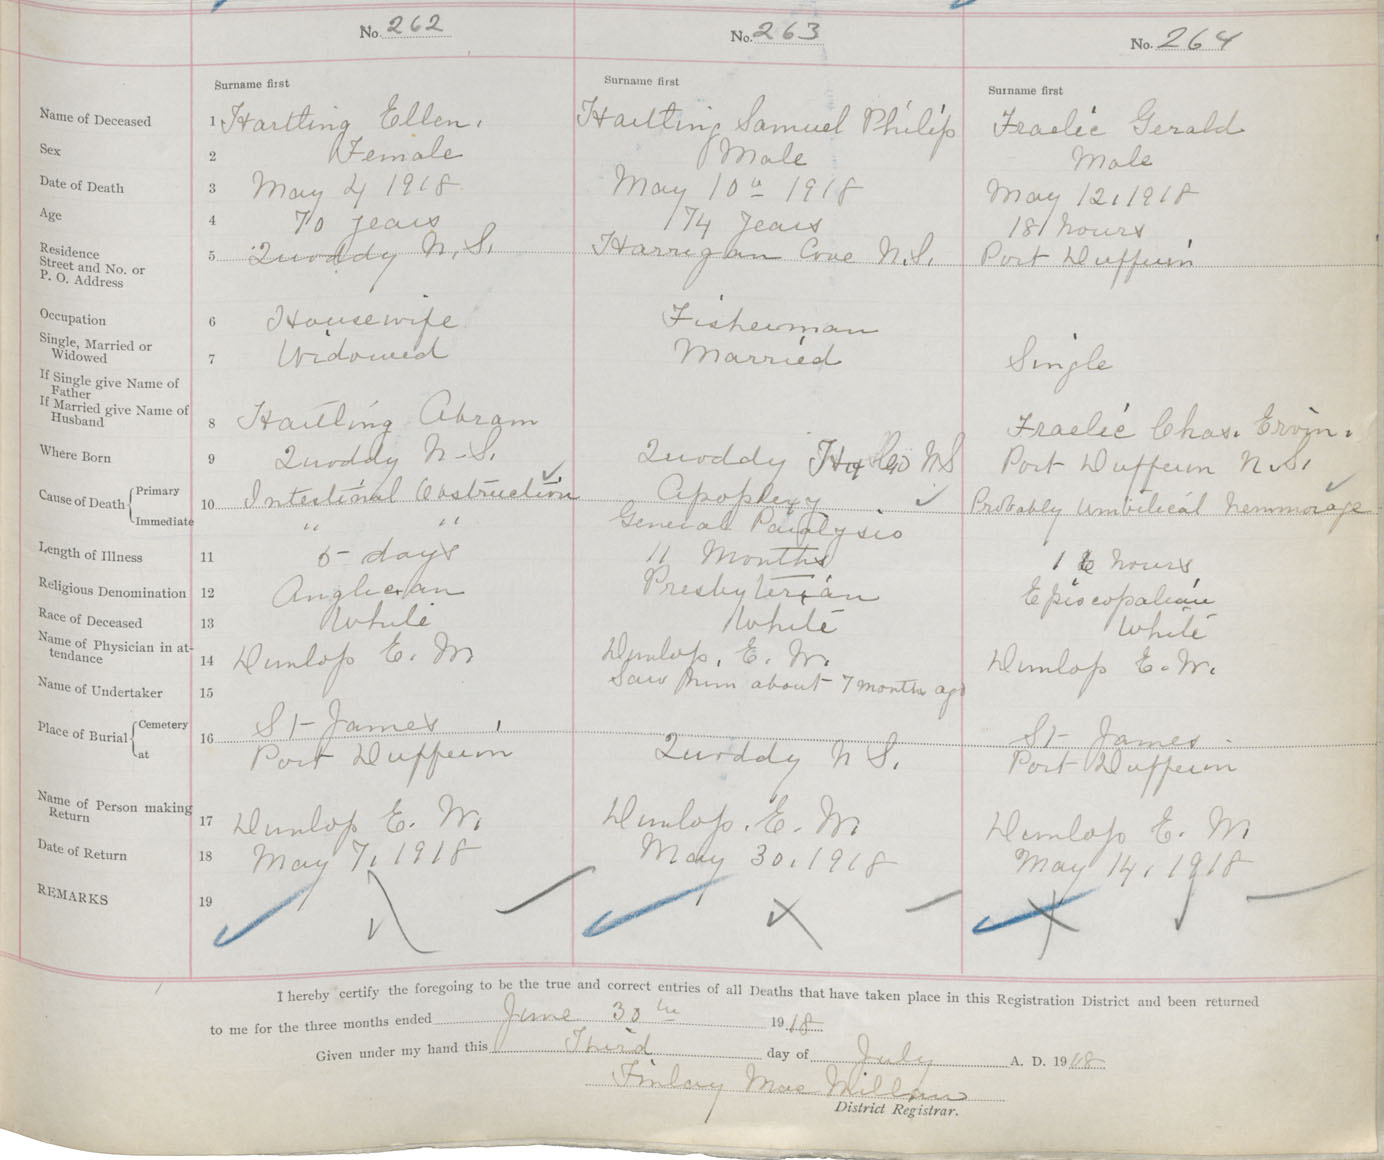 No. 262 No. 263 No. 264
Surname first Surname first Surname first
Name of Deceased 1 Hartling Ellen. Hartling Samuel Philip Fraelic Gerald
Sex 2 Female Male Male
Date of Death 3 May 4 1918 May 10th 1918 May 12, 1918
Age 4 70 years 74 years 18 hours
Residence
Street and No. or
P. O. Address 5 Quoddy N.S. Harrigan Cove N.S. Port Dufferin
Occupation 6 Housewife Fisherman
Single, Married or
Widowed 7 Widowed Married Single
If Single give Name of
Father
If Married give Name of
Husband 8 Hartling Abram Fraelic Chas. Ervin.
Where Born 9 Quoddy N.S. Quoddy Hfx Co NS Port Dufferin N.S.
Cause of Death Primary 10 Intestinal Obstruction Apoplexy Probably umbilical hemmorage
Immediate " " General Paralysis
Length of Illness 11 5 days 11 Months 16 hours
Religious Denomination 12 Anglican Presbyterian Episcopalian
Race of Deceased 13 White White White
Name of Physician in at-
tendance 14 Dunlop E. M. Dunlop, E. M. Dunlop E. M.
Name of Undertaker 15 Saw him about 7 months ago
Place of Burial Cemetery 16 St James, St James.
at Port Dufferin Quoddy N S. Port Dufferin
Name of Person making
Return 17 Dunlop E. M. Dunlop. E. M. Dunlop E. M.
Date of Return 18 May 7, 1918 May 30, 1918 May 14, 1918
REMARKS 19
I hereby certify the foregoing to be the true and correct entries of all Deaths that have taken place in this Registration District and been returned
to me for the three months ended June 30th 1918
Given under my hand this Third day of July A. D. 1918
Finlay MacMillan
District Registrar.